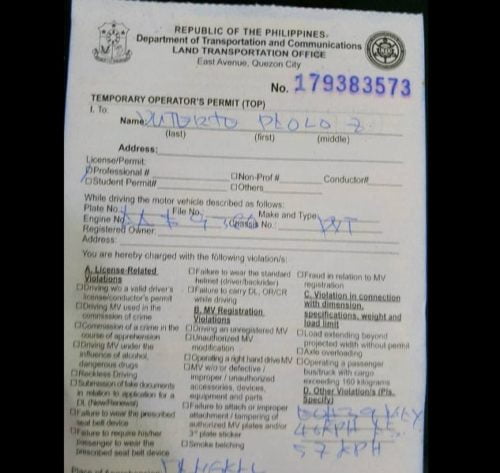 REPUBLIC OF THE PHILIPPINES
Department of Transportation and Communications
LAND TRANSPORTATION OFFICE
East Avenue, Quezon City
No. 179383573
TEMPORARY OPERATOR'S PERMIT (TOP)
1. To:
Name:
(last) (first) (middle)
Address:
License/Permit:
Professional # Non-Prof # Conductor#
Student Permit# Others
While driving the motor vehicle described as follows:
Plate No. File No. Make and Type
Engine No. Chassis No.:
Registered Owner:
Address:
You are hereby charged with the following violation/s:
A. License-Related
Violations
Driving w/o a valid driver's
license/conductor's permit
Driving MV used in the
commission of crime
Commission of a crime in the
course of apprehension
Driving MV under the
influence of alcohol,
dangerous drugs
Reckless Driving
Submission of fake documents
in relation to application for a
DL (New/Renewal)
Failure to wear the prescribed
seat belt device
Failure to require his/her
passenger to wear the
prescribed seat belt device
Failure to wear the standard
helmet (driver/backrider)
Failure to carry DL, OR/CR
while driving
B. MV Registration
Violations
Driving an unregistered MV
Unauthorized MV
modification
Operating a right hand drive MV
MV w/o or defective /
improper / unauthorized
accessories, devices,
equipment and parts
Failure to attach or improper
attachment / tampering of
authorized MV plates and/or
3rd plate sticker
Smoke belching
Fraud in relation to MV
registration
C. Violation in connection
with dimension,
specifications, weight and
load limit
Load extending beyond
projected width without permit
Axle overloading
Operating a passenger
bus/truck with cargo
exceeding 160 kilograms
D. Other Violation/s (Pls.
Specify)
57 KPH